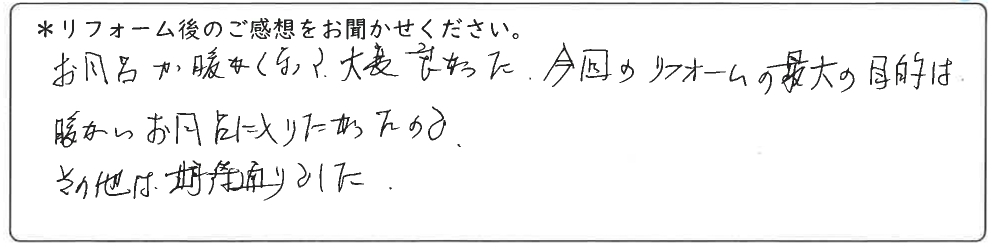 ＊リフォーム後のご感想をお聞かせください。
お風呂が暖かくなって、大変良かった。今回のリフォームの最大の目的は
暖かいお風呂に入りたかったので、
その他は期待通りでした。